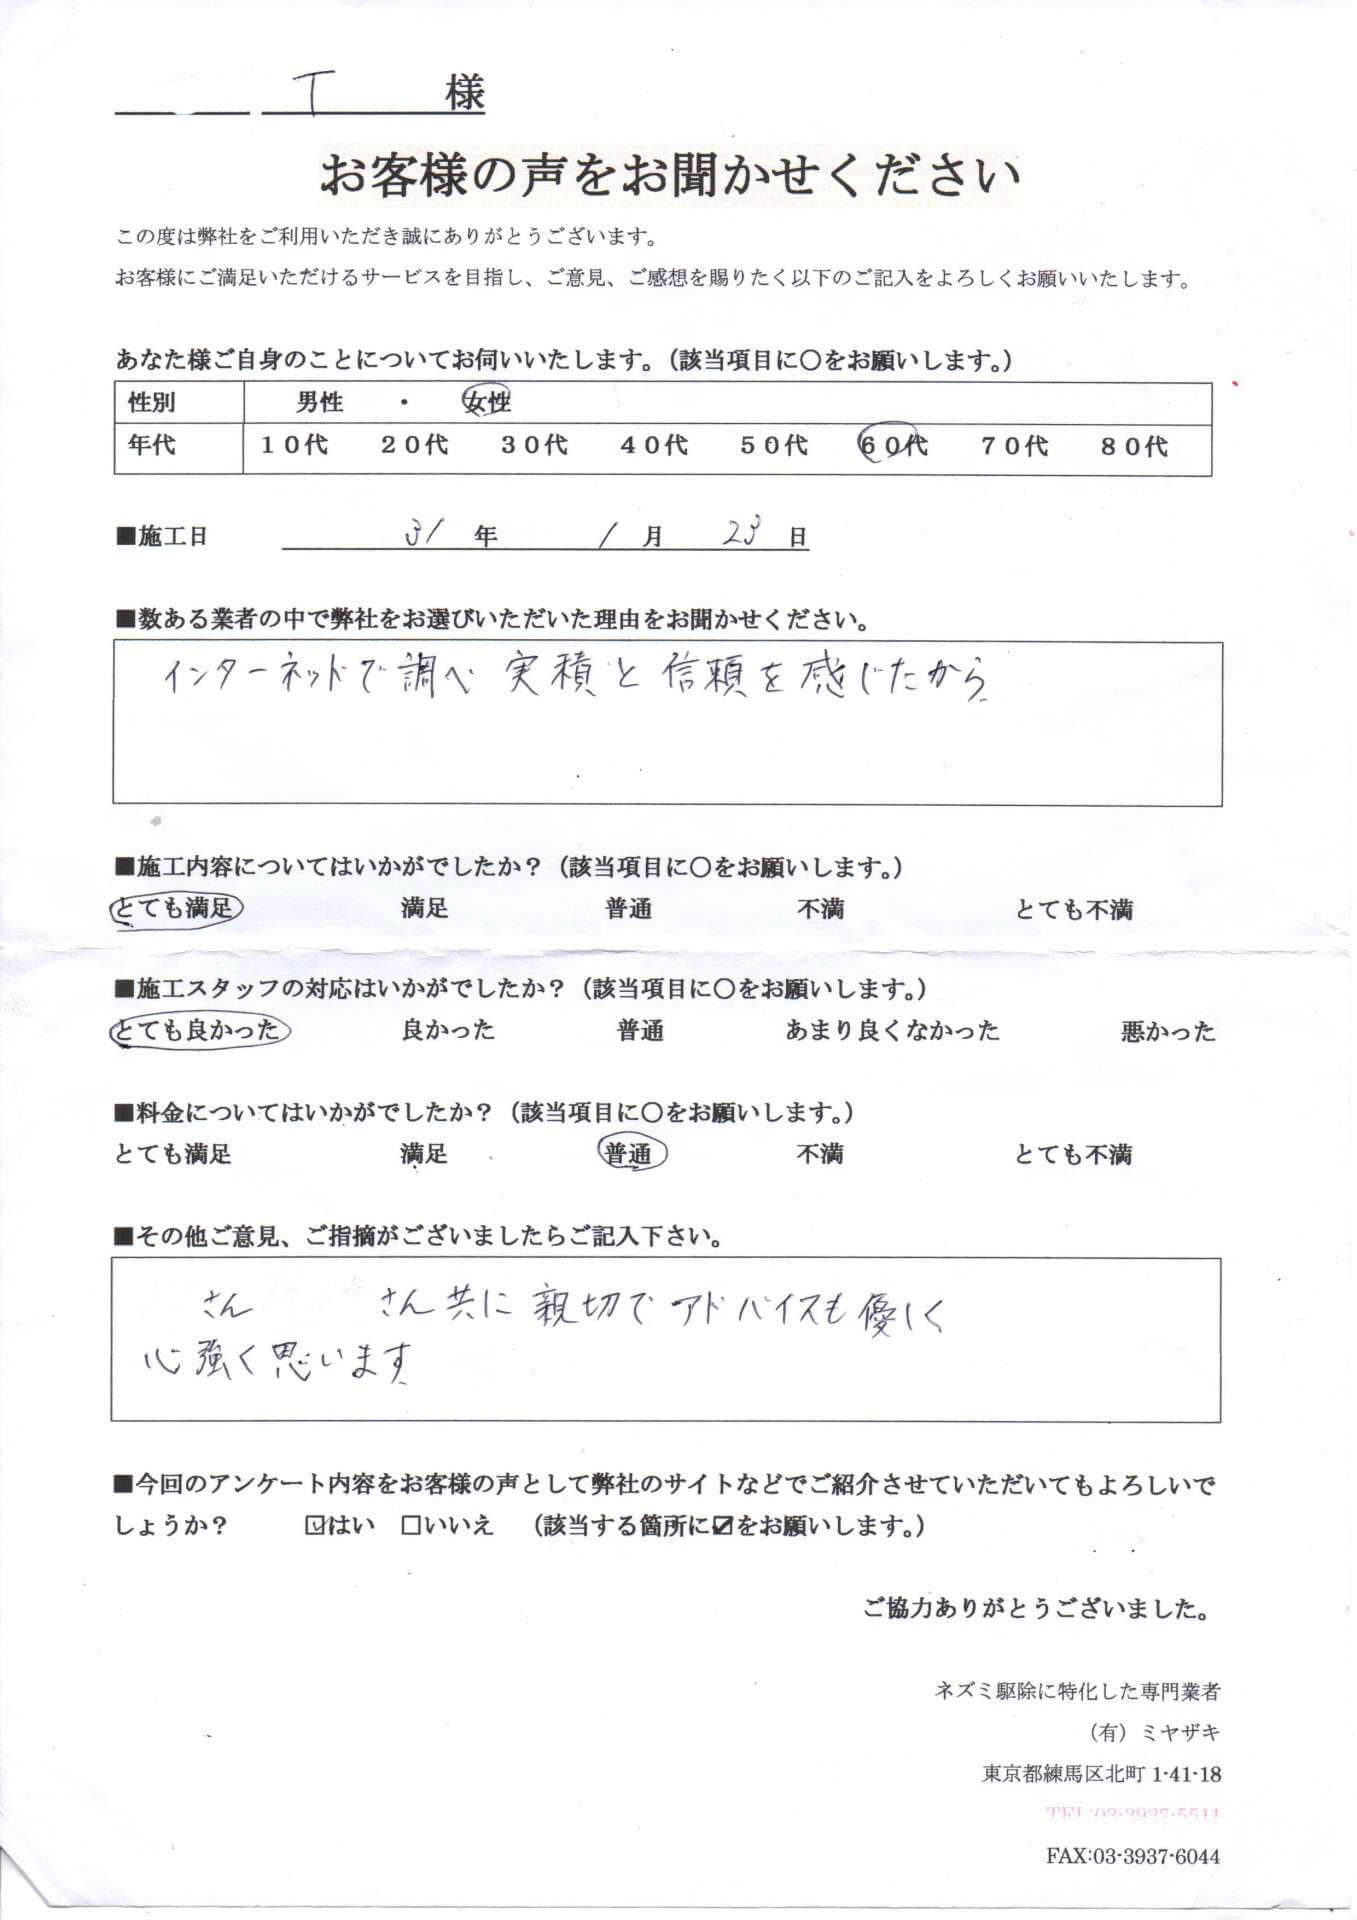 T 様
お客様の声をお聞かせください
この度は弊社をご利用いただき誠にありがとうございます。
お客様にご満足いただけるサービスを目指し、ご意見、ご感想を賜りたく以下のご記入をよろしくお願いいたします。
あなた様ご自身のことについてお伺いいたします。（該当項目に〇をお願いします。）
性別 男性 ・ 女性
年代 １０代 ２０代 ３０代 ４０代 ５０代 ６０代 ７０代 ８０代
■施工日 31 年 1 月 23 日
■数ある業者の中で弊社をお選びいただいた理由をお聞かせください。
インターネットで調べ 実積と信頼を感じたから
■施工内容についてはいかがでしたか？（該当項目に〇をお願いします。）
とても満足 満足 普通 不満 とても不満
■施工スタッフの対応はいかがでしたか？（該当項目に〇をお願いします。）
とても良かった 良かった 普通 あまり良くなかった 悪かった
■料金についてはいかがでしたか？（該当項目に〇をお願いします。）
とても満足 満足 普通 不満 とても不満
■その他ご意見、ご指摘がございましたらご記入下さい。
さん さん共に親切でアドバイスも優しく
心強く思います
■今回のアンケート内容をお客様の声として弊社のサイトなどでご紹介させていただいてもよろしいで
しょうか？ ☑はい □いいえ （該当する箇所に☑をお願いします。）
ご協力ありがとうございました。
ネズミ駆除に特化した専門業者
（有）ミヤザキ
東京都練馬区北町 1-41-18
TEL:03-3937-5511
FAX:03-3937-6044